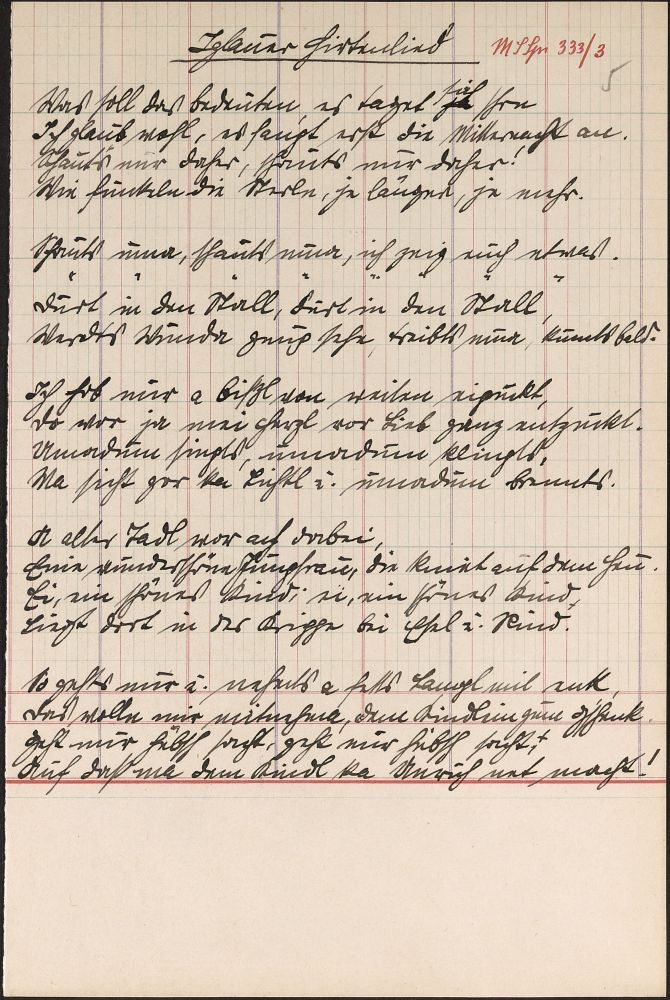 Iglauer Hirtenlied
MSSpr 333/3
5
Was soll das bedeuten, es taget sich schon
Ich glaub wohl, es fangt erst die Mitternacht an.
Schauts nur daher, schauts nur daher!
Wie funkeln die Sterln, je länger, je mehr.
Schauts uma, schauts uma, ich zeig euch etwas.
" " " " " " "
Durt in den Stall, durt in den Stall,
Werdts Wunda genug sehe, treibts uma, kummts bald.
Ich hob nur a bißl von weiten eiguckt,
Do wor ja mei Herzl vor Lieb ganz entzuckt.
Umadum singts, umadum klingts,
Ma sicht gor ka Lichtl u. umadum brennts.
A alter Tadl wor auf dabei,
Eine wunderschöne Jungfrau, die kniet auf dem Heu.
Ei, ein schönes Kind; ei, ein schönes Kind,
Liegt dort in der Krippe bei Esel u. Rind.
So gehts nur u. nehmts a fetts Lampl mit enk,
Das wolln mir mitnehma, dem Kindlein zum Gschenk.
Geht nur hübsch sacht, geht nur hübsch sacht,
Auf daß ma dem Kindl ka Unruh net macht!